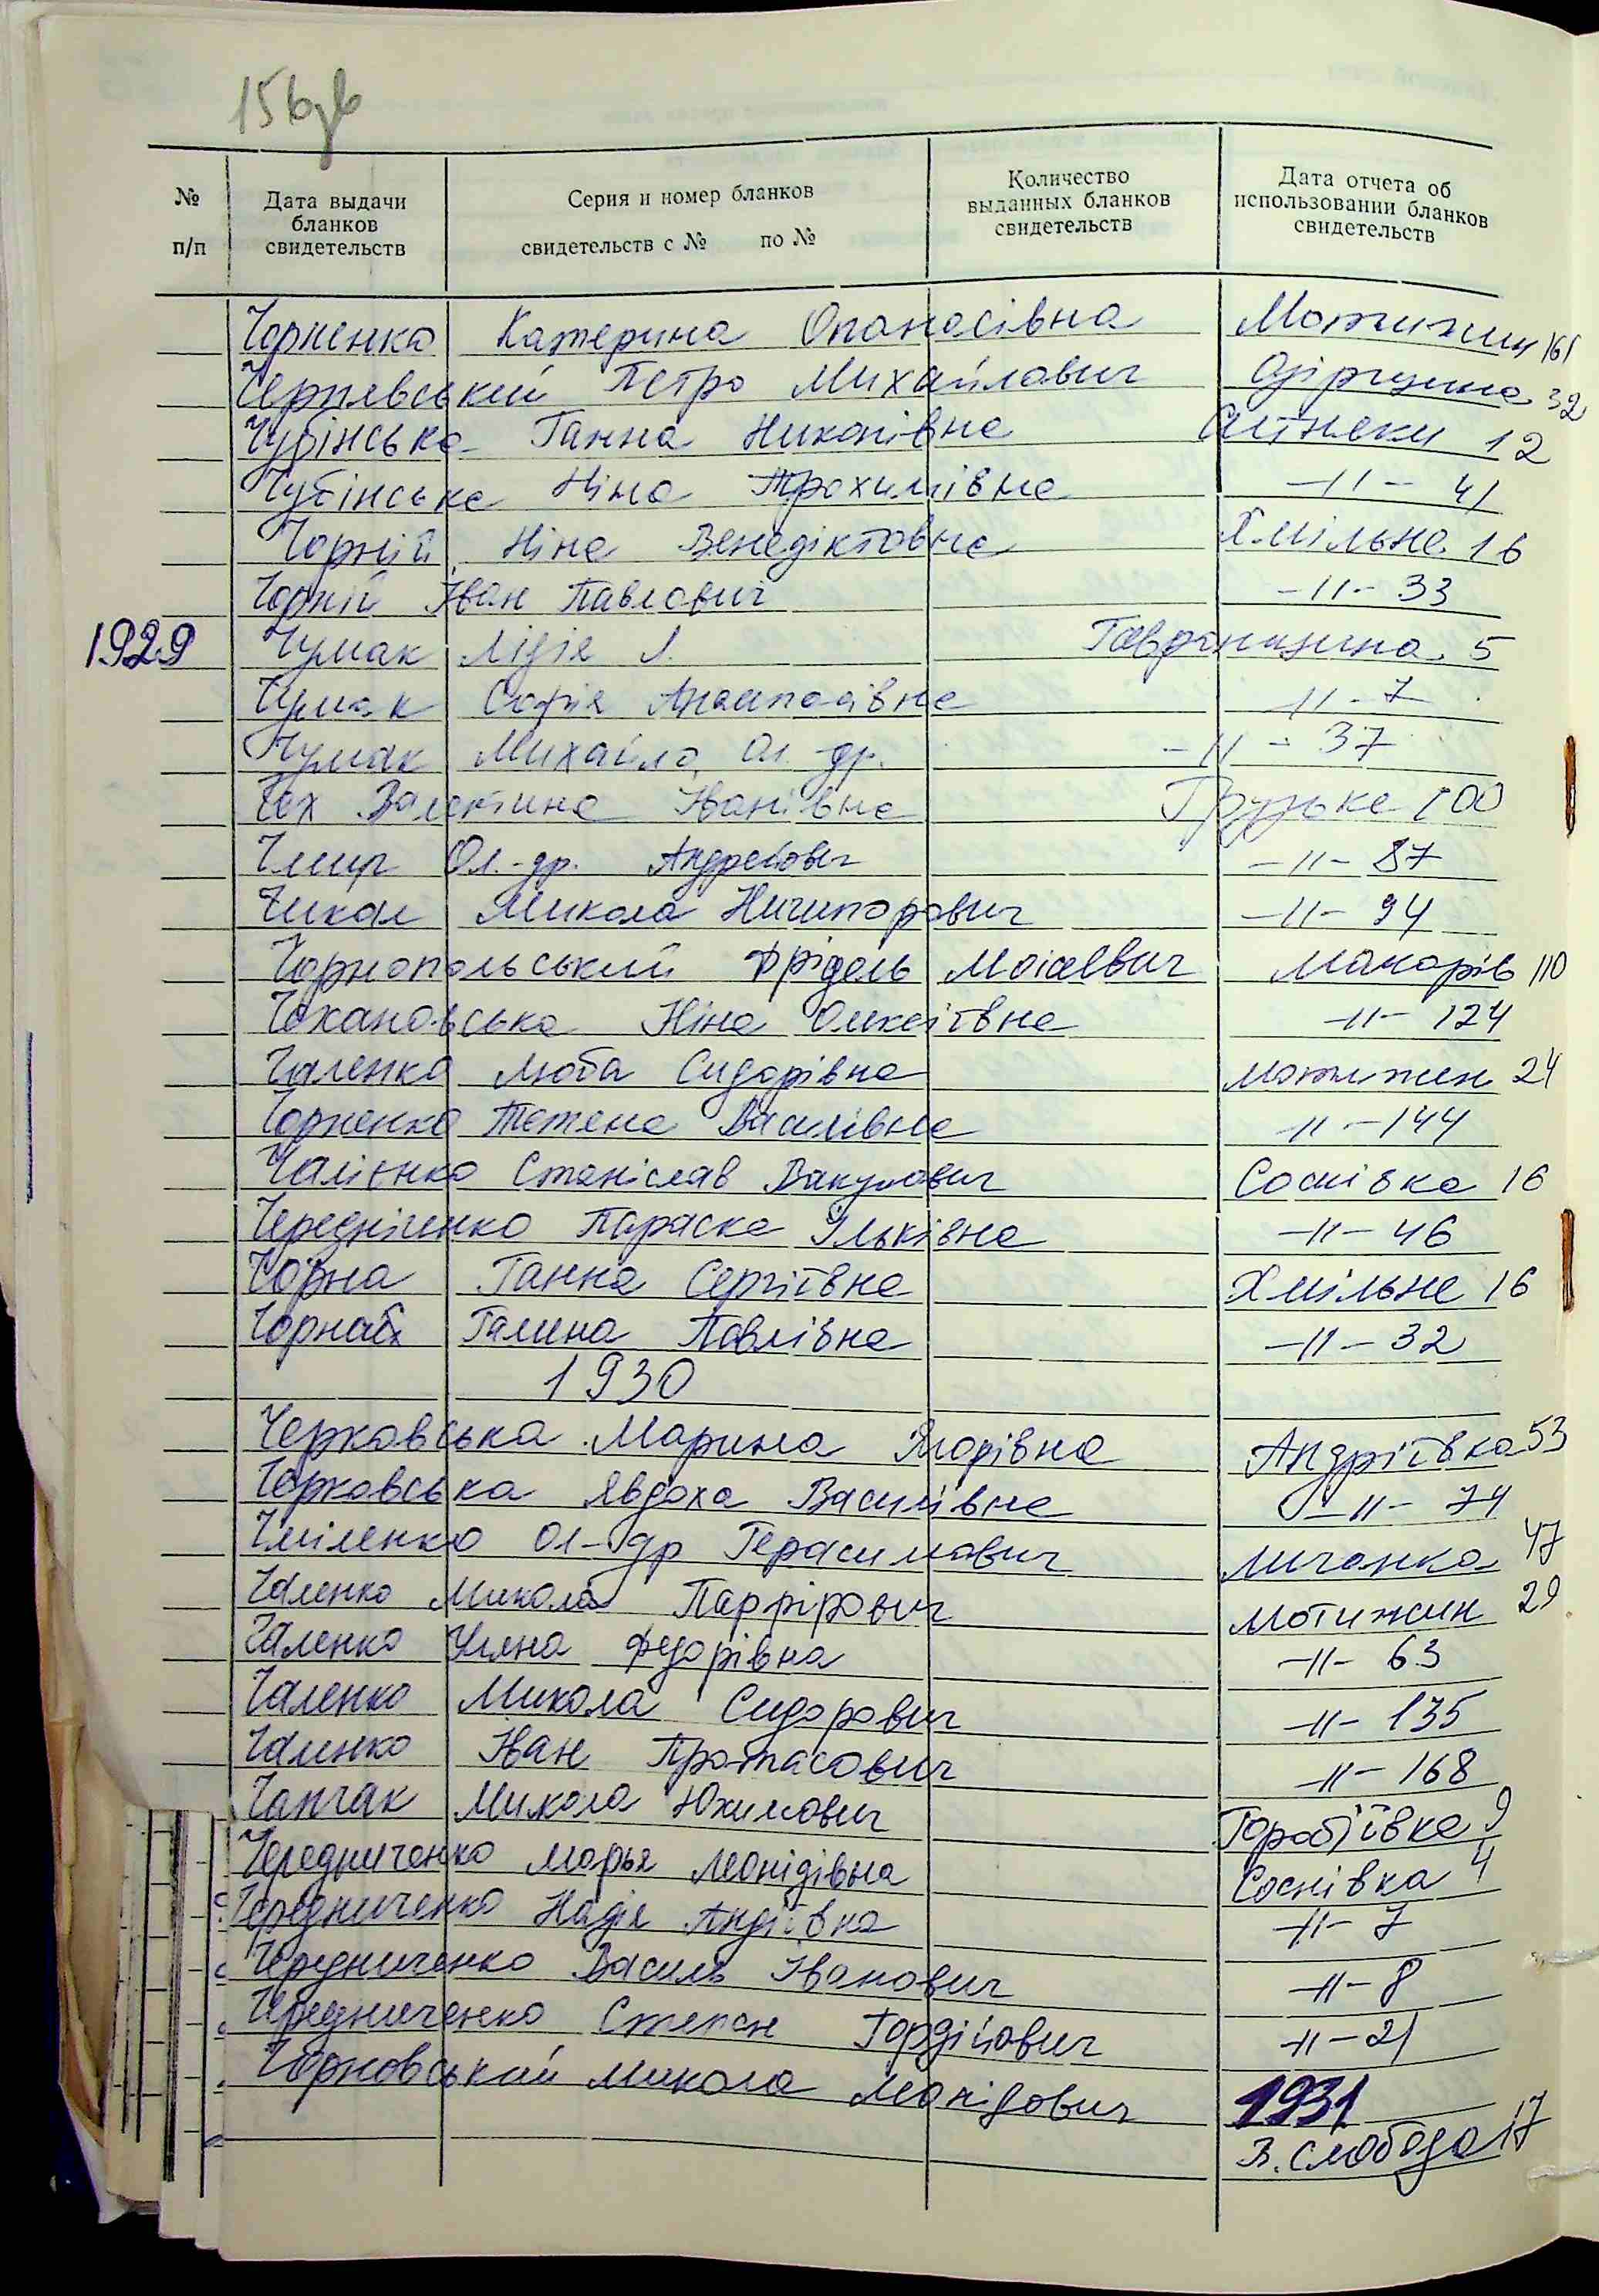 156зв
№ п/п
Дата выдачи бланков свидетельств
Серия и номер бланков свидетельств с № по №
Количество выданных бланков свидетельств
Дата отчета об использовании бланков свидетельств
Чорненко Катерина Опанасівна Мотижин 161
Чернявський Петро Михайлович 32
Чубінська Ганна Никонівна Ситняки 12
Чубінська Ніна Трохимівна -11- 41
Чорній Ніна Венедіктовна Хмільна 16
Чорній Іван Павлович -11- 33
1929 Чумак Лідія Л. Гавронщина 5
Чумак Софія -11- 7
Чумак Михайло Ол.-др. -11- 37
Чех Валентина Іванівна Грузьке 100
Чмир Ол.-др. Андрейович -11- 87
Чикал Микола Ничипорович -11- 94
Чорнопольський Фрідель Моісевич Макарів 110
Чехановська Ніна Олексіївна -11- 124
Чаленко Люба Сидорівна Мотижин 24
Чорненко Тетяна Василівна -11- 144
Чаліенко Станіслав Вакулович Соснівка 16
Чередніченко Параска Ільківна -11- 46
Чорна Ганна Сергіївна Хмільна 16
Галина Павлівна -11- 32
1930
Черковська Марина Андріївка 53
Черковська Явдоха Василівна -11- 74
Чміленко Ол-др Герасимович Личанка 47
Чаленко Микола Парфірович Мотижин 29
Чаленко Уляна Федорівна -11- 63
Чаленко Микола Сидорович -11- 135
Чаленко Іван Протасович -11- 168
Чапчак Микола Юхимович Горобіївка 9
Чередниченко Марья Леонідівна Соснівка 4
Чередниченко Надія Андіївна -11- 7
Чередниченко Василь Іванович -11- 8
Чередниченко Степан Гордійович -11- 21
Чорновський Микола Леонідович 1931
В. Слобода 17